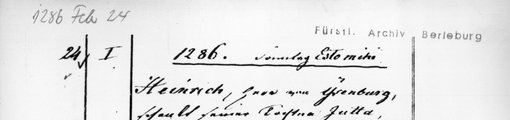 1286 Feb 24
Fürstl. Archiv Berleburg
24 I 1286. Sonntag Estomihi
Heinrich, Herr von Ysenburg,
schenkt seiner Tochter Jutta,